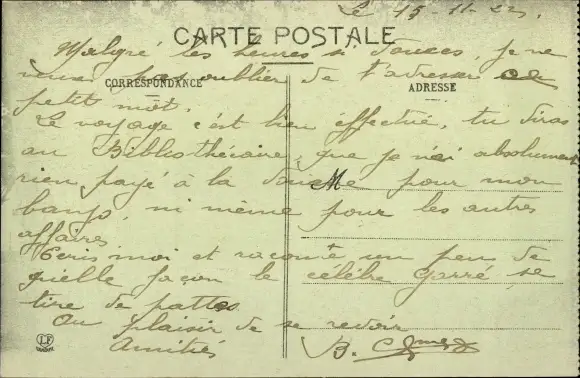 Le 15-11-22.
CARTE POSTALE
Malgré les heures si douces, je ne
veux pas oublier de t'adresser ce
CORRESPONDANCE
ADRESSE
petit mot.
Le voyage c'est bien éffectué, tu diras
au Bibliothécaire, que je n'ai absolument
rien payé à la Douane pour mon
banjo, ni même pour les autres
affaires
Ecris moi et raconte un peu de
quelle façon le célèbre Garré se
tire de pattes
Au plaisir de se revoir
Amitiés
B.
M
LF